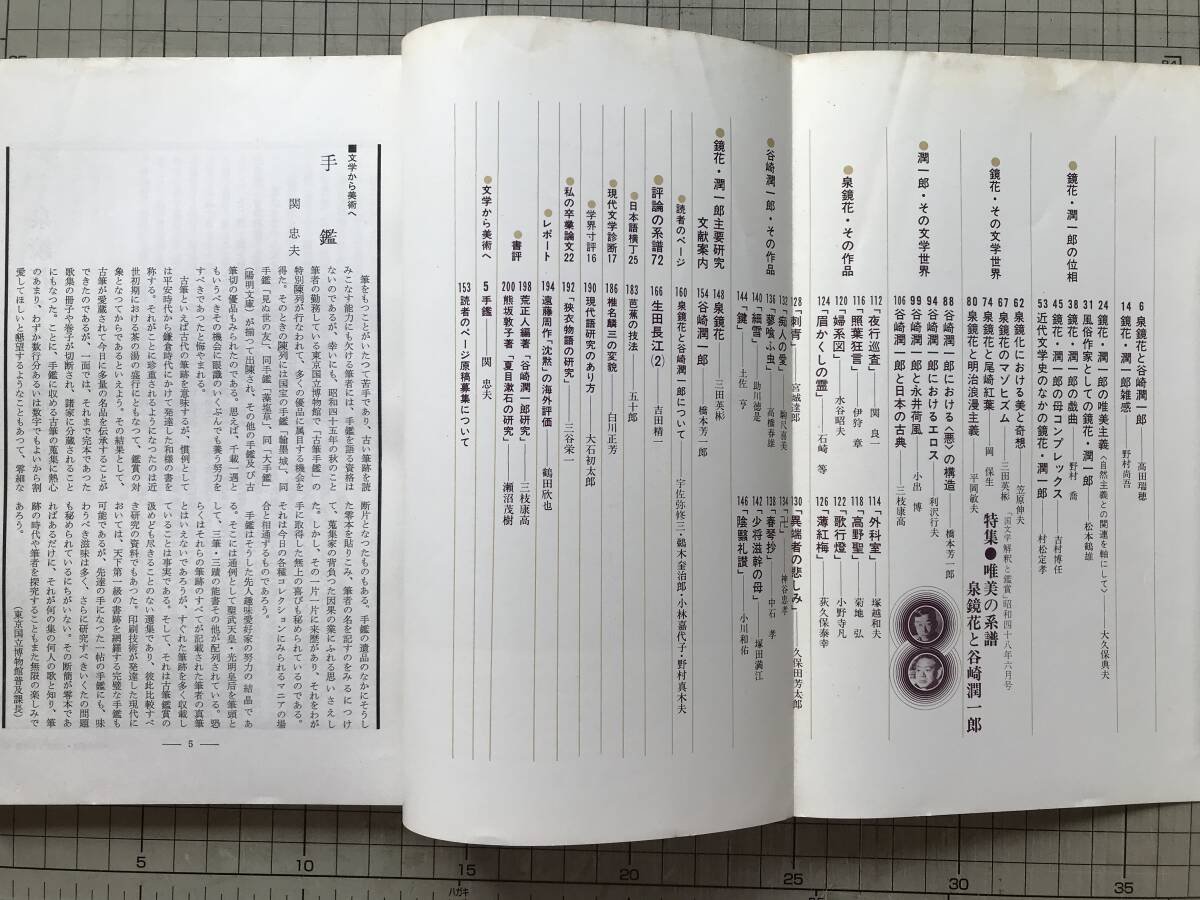 「国文学 解釈と鑑賞」昭和四十八年六月号
特集●唯美の系譜
泉鏡花と谷崎潤一郎
●鏡花・潤一郎の位相
6 泉鏡花と谷崎潤一郎 高田瑞穂
14 鏡花・潤一郎雑感 野村尚吾
24 鏡花・潤一郎の唯美主義〈自然主義との関連を軸にして〉 大久保典夫
31 風俗作家としての鏡花・潤一郎 松本鶴雄
38 鏡花・潤一郎の戯曲 野村喬
45 鏡花・潤一郎の母コンプレックス 吉村博任
53 近代文学史のなかの鏡花・潤一郎 村松定孝
●鏡花・その文学世界
62 泉鏡花における美と奇想 笠原伸夫
67 泉鏡花のマゾヒズム 三田英彬
74 泉鏡花と尾崎紅葉 岡保生
80 泉鏡花と明治浪漫主義 平岡敏夫
●潤一郎・その文学世界
88 谷崎潤一郎における〈悪〉の構造 橋本芳一郎
94 谷崎潤一郎におけるエロス 利沢行夫
99 谷崎潤一郎と永井荷風 小出博
106 谷崎潤一郎と日本の古典 三枝康高
●泉鏡花・その作品
112 「夜行巡査」 関良一
114 「外科室」 塚越和夫
116 「照葉狂言」 伊狩章
118 「高野聖」 菊地弘
120 「婦系図」 水谷昭夫
122 「歌行燈」 小野寺凡
124 「眉かくしの霊」 石崎等
126 「薄紅梅」 荻久保泰幸
●谷崎潤一郎・その作品
128 「刺青」 宮城達郎
130 「異端者の悲しみ」 久保田芳太郎
132 「痴人の愛」 駒尺喜美
134 「卍」 神谷忠孝
136 「蓼喰ふ虫」 高橋春雄
138 「春琴抄」 中石孝
140 「細雪」 助川徳是
142 「少将滋幹の母」 塚田満江
144 「鍵」 土佐亨
146 「陰翳礼讃」 小川和佑
●鏡花・潤一郎主要研究文献案内
148 泉鏡花 三田英彬
154 谷崎潤一郎 橋本芳一郎
●読者のページ
160 泉鏡花と谷崎潤一郎について 宇佐弥修三・鵜木奎治郎・小林嘉代子・野村真木夫
●評論の系譜72
166 生田長江(2) 吉田精一
●日本語横丁25
183 芭蕉の技法 五十郎
●現代文学診断17
186 椎名麟三の変貌 白川正芳
●学界寸評16
190 現代語研究のあり方 大石初太郎
●私の卒業論文22
192 「狭衣物語の研究」 三谷栄一
●レポート
194 遠藤周作「沈黙」の海外評価 鶴田欣也
●書評
198 荒正人編著「谷崎潤一郎研究」 三枝康高
200 熊坂敦子著「夏目漱石の研究」 瀬沼茂樹
●文学から美術へ
5 手鑑 関忠夫
153 読者のページ原稿募集について
■文学から美術へ
手鑑
関忠夫
筆をもつことがいたつて苦手であり、古い筆跡を読
みこなす能力にも欠ける筆者には、手鑑を語る資格は
ないのであるが、幸いにも、昭和四十五年の秋のこと
筆者の勤務している東京国立博物館で「古筆手鑑」の
特別陳列が行なわれて、多くの優品に属目する機会を
得た。そのときの陳列には国宝の手鑑「翰墨城」、同
手鑑「見ぬ世の友」、同手鑑「藻塩草」、同「大手鑑」
(陽明文庫)が揃つて出陳され、その他の手鑑及び古
筆切の優品もみられたのである。思えば、千載一遇と
もいうべきその機会に眼識のいくぶんでも養う努力を
すべきであつたと悔やまれる。
古筆といえば古代の筆跡を意味するが、慣例として
は平安時代から鎌倉時代にかけて発達した和様の書を
称する。それがことに珍重されるようになつたのは近
世初期における茶の湯の盛行にともなつて、鑑賞の対
象となつてからであるといえよう。その結果として、
古筆が愛蔵されて今日に多量の名品を伝承することが
できたのであるが、一面では、それまで完本であつた
歌集の冊子や巻子が切断され、諸家に分蔵されること
にもなつた。ことに、手鑑に収める古筆の蒐集に熱心
のあまり、わずか数行分あるいは数字でもよいから割
愛してほしいと懇望するようなこともあつて、零細な
断片となつたものもある。手鑑の遺品のなかにそうし
た零本を貼りこみ、筆者の名を記すのをみるにつけ
て、蒐集家の背負つた因果の業にふれる思いさえし
た。しかし、その一片一片に来歴があり、それをわが
手に取得した無上の喜びも秘められているのである。
それは今日の各種コレクションにみられるマニアの場
合と相通ずるものであろう。
手鑑はそうした先人趣味愛好家の努力の結晶であ
る。そこには通例として聖武天皇・光明皇后を筆頭と
して、三筆・三蹟の能書その他が配列されている。恐
らくはそれらの筆跡のすべてが記載された筆者の真筆
とはいえないであろうが、すぐれた筆跡を多く収載し
ていることは事実である。そして、それは古筆鑑賞の
汲めども尽きることのない選集であり、彼此比較すべ
き研究の資料でもあつた。印刷技術が発達した現代に
おいては、天下第一級の書跡を網羅する完璧な手鑑も
可能であるが、先達の手になつた一帖の手鑑にも、味
わうべき滋味は多く、さらに研究すべきいくたの問題
も秘められているにちがいない。その断簡が零本であ
ればあるだけに、それが何の集の何人の歌と知り、筆
跡の時代や筆者を探究することもまた無限の楽しみで
あろう。
(東京国立博物館普及課長)
— 5 —
5
10
15
ハガキ
20
25
30
35